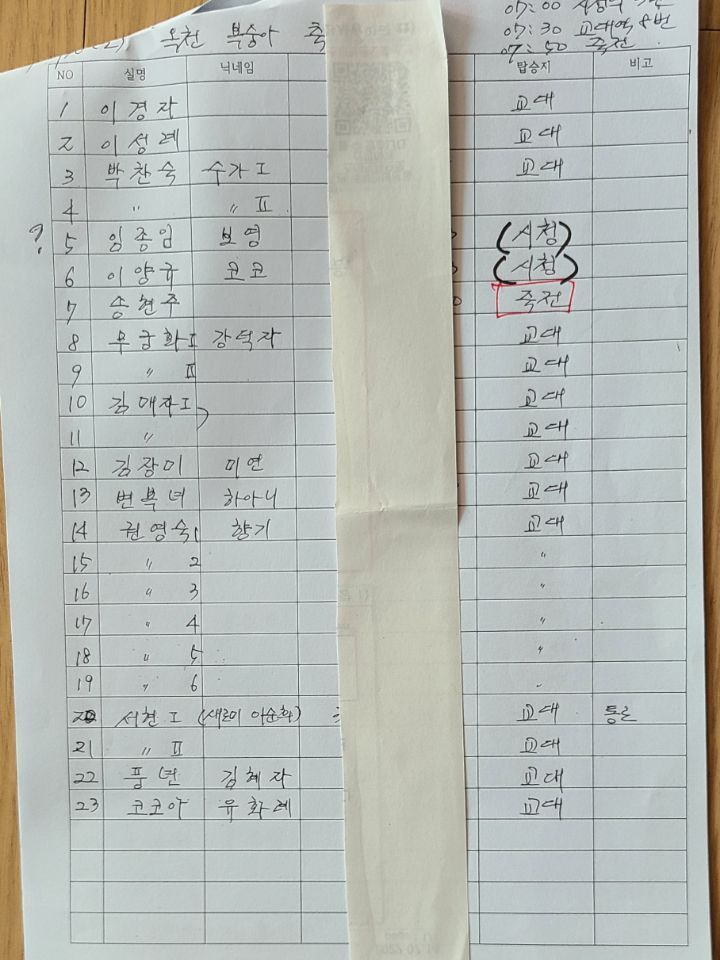 07:00 시청역
07:30 교대역 8번
옥천 복숭아 축
07:50 죽전
NO 실명 닉네임 탑승지 비고
1 이경자 교대
2 이성례 교대
3 박찬숙 수가 I 교대
4 〃 〃 II
? 5 임종임 보영 (시청)
6 이양규 코코 (시청)
7 송현주 죽전
8 무궁화 I 강덕자 교대
9 〃 II 교대
10 김애자 I 교대
11 〃 교대
12 김장미 미연 교대
13 변복녀 하아니 교대
14 권영숙 1 향기 교대
15 〃 2 〃
16 〃 3 〃
17 〃 4 〃
18 〃 5 〃
19 〃 6 〃
20 서현 I (새로미 이순화) 교대 통로
21 〃 II 교대
22 풍년 김혜자 교대
23 코코아 유화례 교대